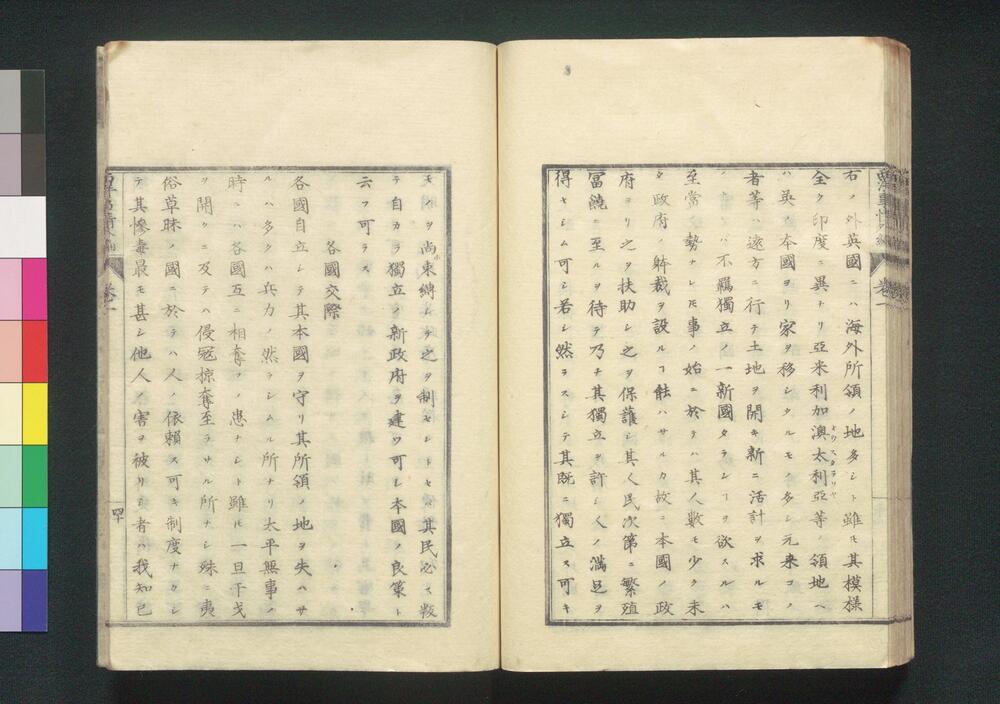 右ノ外英國ニハ海外所領ノ地多シト雖モ其模様
全ク印度ニ異ナリ亞米利加澳太利亞等ノ領地ヘ
オウスタラリヤ
ハ英ノ本國ヨリ家ヲ移シタルモノ多シ元来コノ
者等ハ遠方ニ行テ土地ヲ開キ新ニ活計ヲ求ルモ
ノニテ不羈獨立ノ一新國タランヿヲ欲スルハ
至當ノ勢ナレ𪜈事ノ始ニ於テハ其人數モ少ク未
タ政府ノ躰裁ヲ設ルヿ能ハサルカ故ニ本國ノ政
府ヨリ之ヲ扶助シ之ヲ保護シ其人民次第ニ繁殖
冨饒ニ至ルヲ待テ乃チ其獨立ヲ許シ人ノ滿足ヲ
得セシム可シ若シ然ラスシテ其既ニ獨立ス可キ
モノヲ尚束縛シテ之ヲ制セントセハ其民必ス叛
テ自カラ獨立ノ新政府ヲ建ツ可シ本國ノ良策ト
云フ可ラス
各國交際
各國自立シテ其本國ヲ守リ其所領ノ地ヲ失ハサ
ルハ多クハ兵力ノ然ラシムル所ナリ太平無事ノ
時ニハ各國互ニ相奪フノ患ナシト雖𪜈一旦干戈
ヲ開クニ及テハ侵冦掠奪至ラサル所ナシ殊ニ夷
俗草昧ノ國ニ於テハ人ノ依頼ス可キ制度ナクシ
テ其惨毒最モ甚シ他人ノ害ヲ被リシ者ハ我知己
卷一
四十